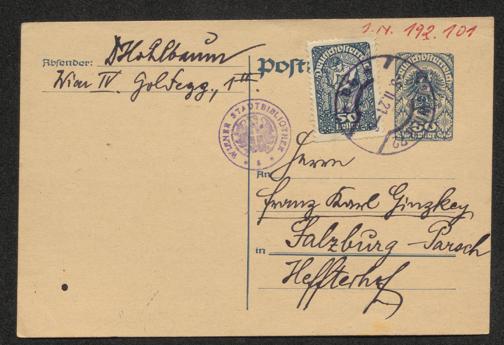 I.N. 192.101
Absender: DHohlbaum
Wien IV. Goldegg, 1
Post
Deutschösterreich
50
Heller
50
Heller
WIENER STADTBIBLIOTHEK
II.21
Herrn
An
Franz Karl Ginzkey
in Salzburg-Parsch
Heffterhof